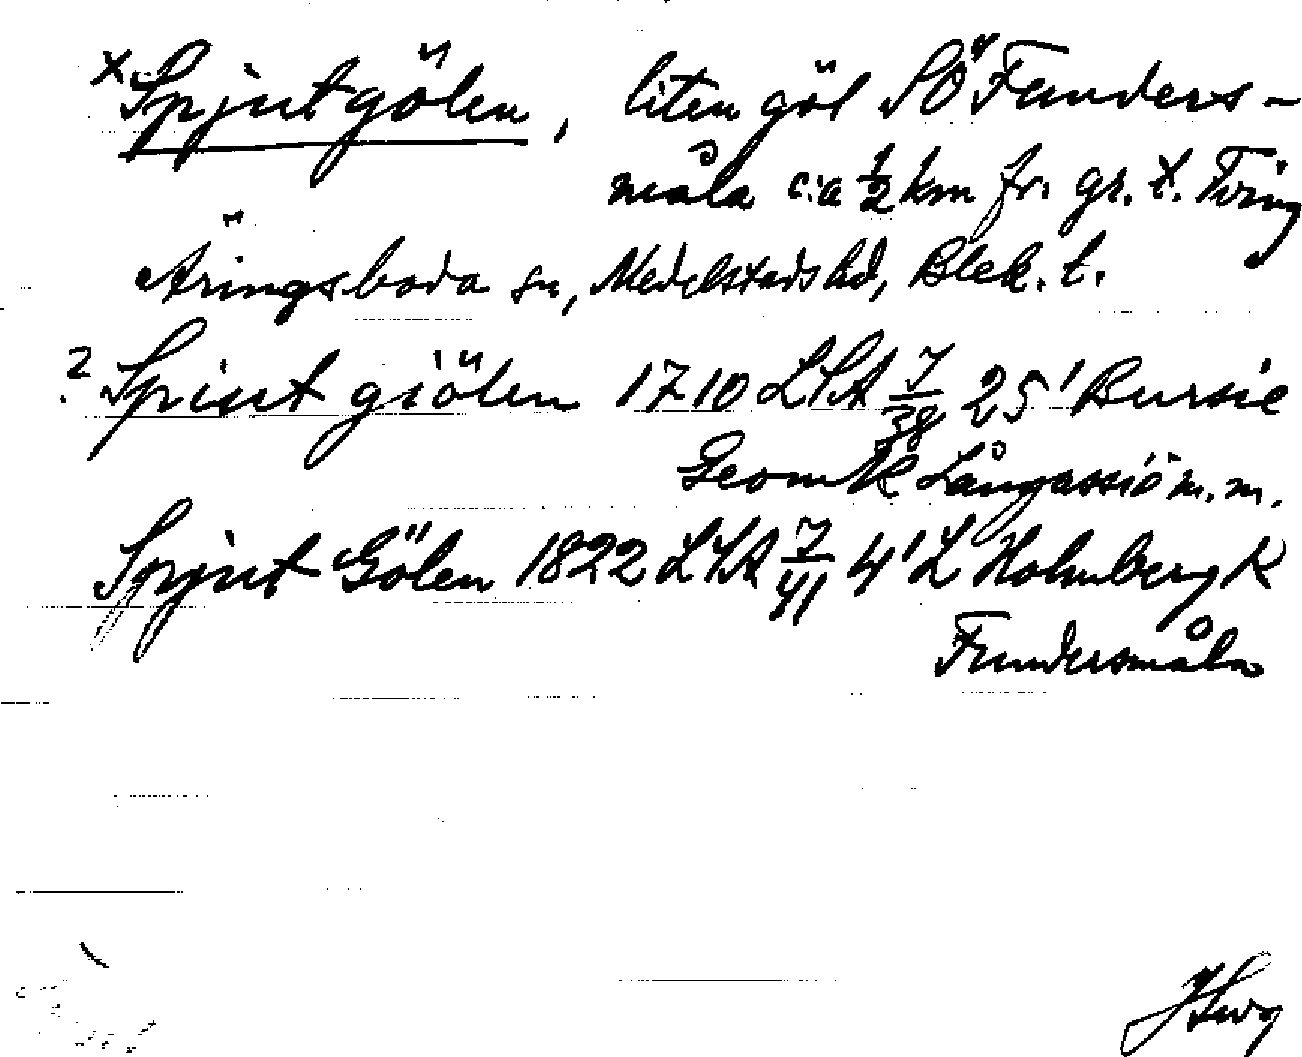 x Spjutgölen, liten göl SÖ Funders-
måla c:a 1/2 km fr. gr. t. Tving
Åringsboda sn, Medelstads hd, Blek. l.
? Spiut giölen 1710 LSA 7/38 25 ' Bursie
Geom K Långassiö m.m.
Spjut Gölen 1822 LSA 7/41 4 ' L Holmberg K
Fundersmåla